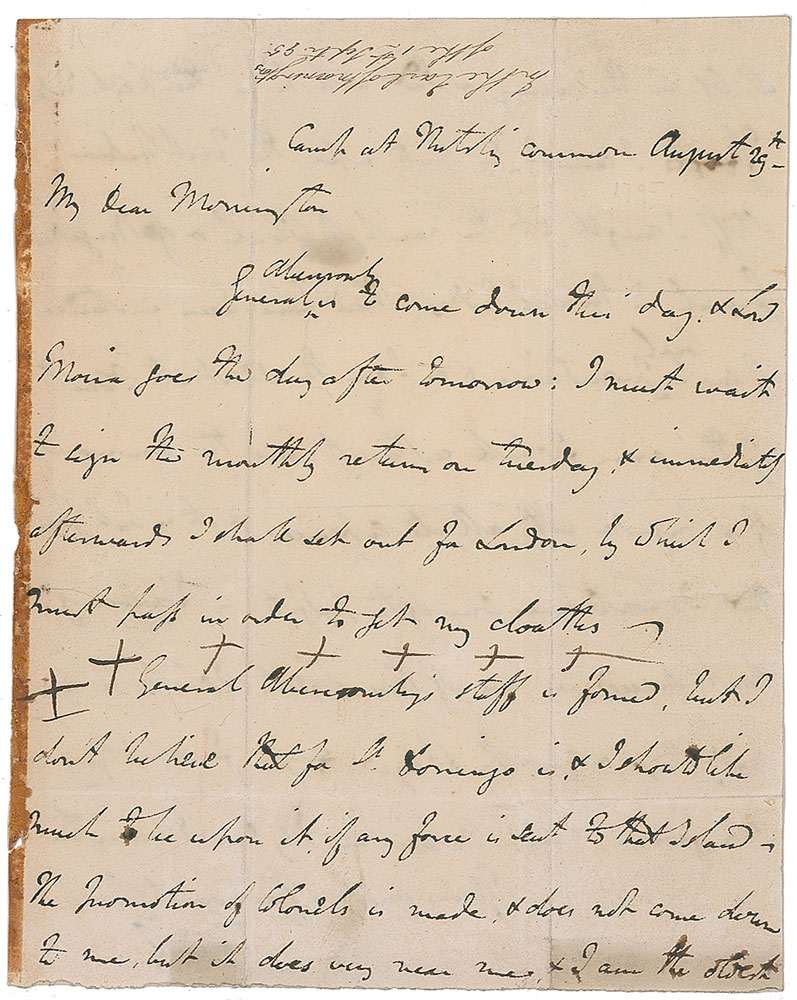 To the Earl of Mornington
of the 1st Septr 95
Camp at Netley common August 29th
My Dear Mornington
Abercromby
General is to come down this day, & Lord
Moira goes the day after tomorrow: I must wait
to sign the monthly return on tuesday, & immediately
afterwards I shall set out for London, by which I
must pass in order to get my cloathes
General Abercromby's staff is formed, but I
don't believe that for St Domingo is, & I should like
much to be upon it, if any force is sent to that Island
The promotion of Colonels is made & does not come down
to me, but it does very near me, & I am the oldest